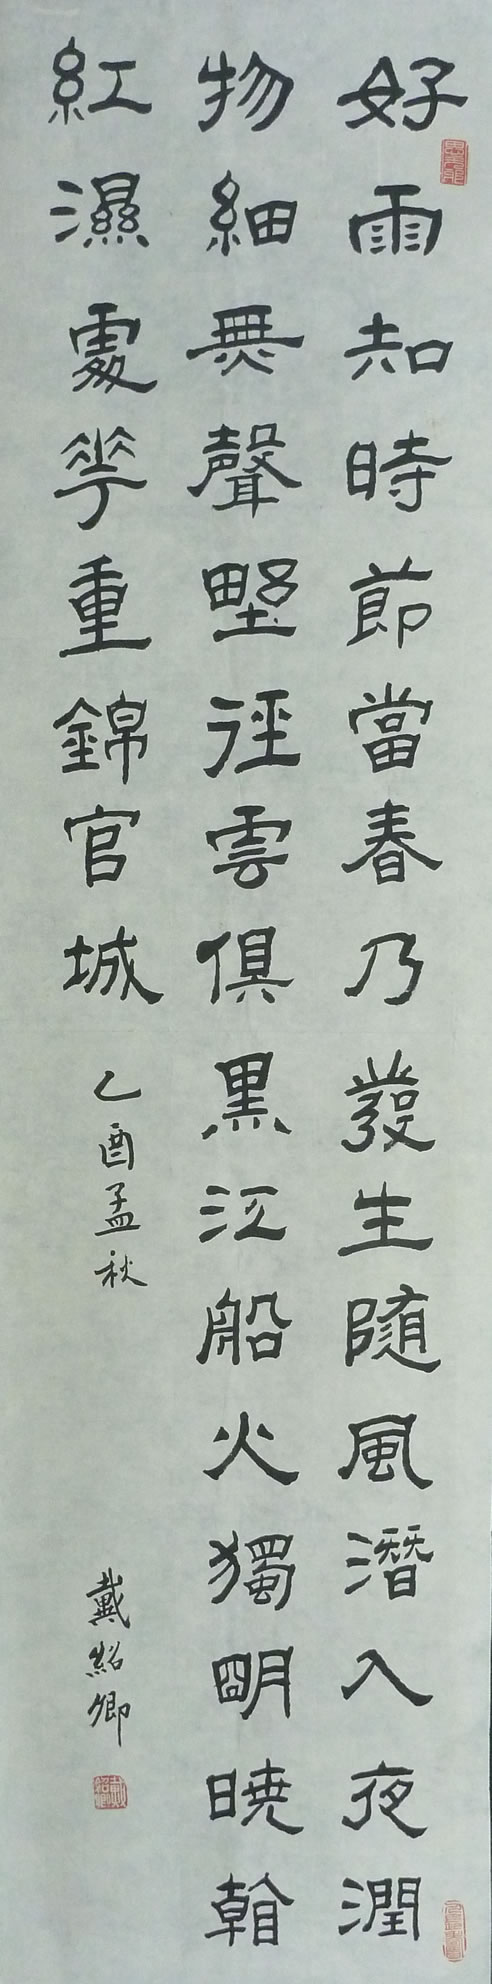 好雨知時節當春乃發生随風潛入夜潤
物細無聲野徑雲俱黑江船火獨明曉看
紅濕處花重錦官城
乙酉孟秋
戴紹卿